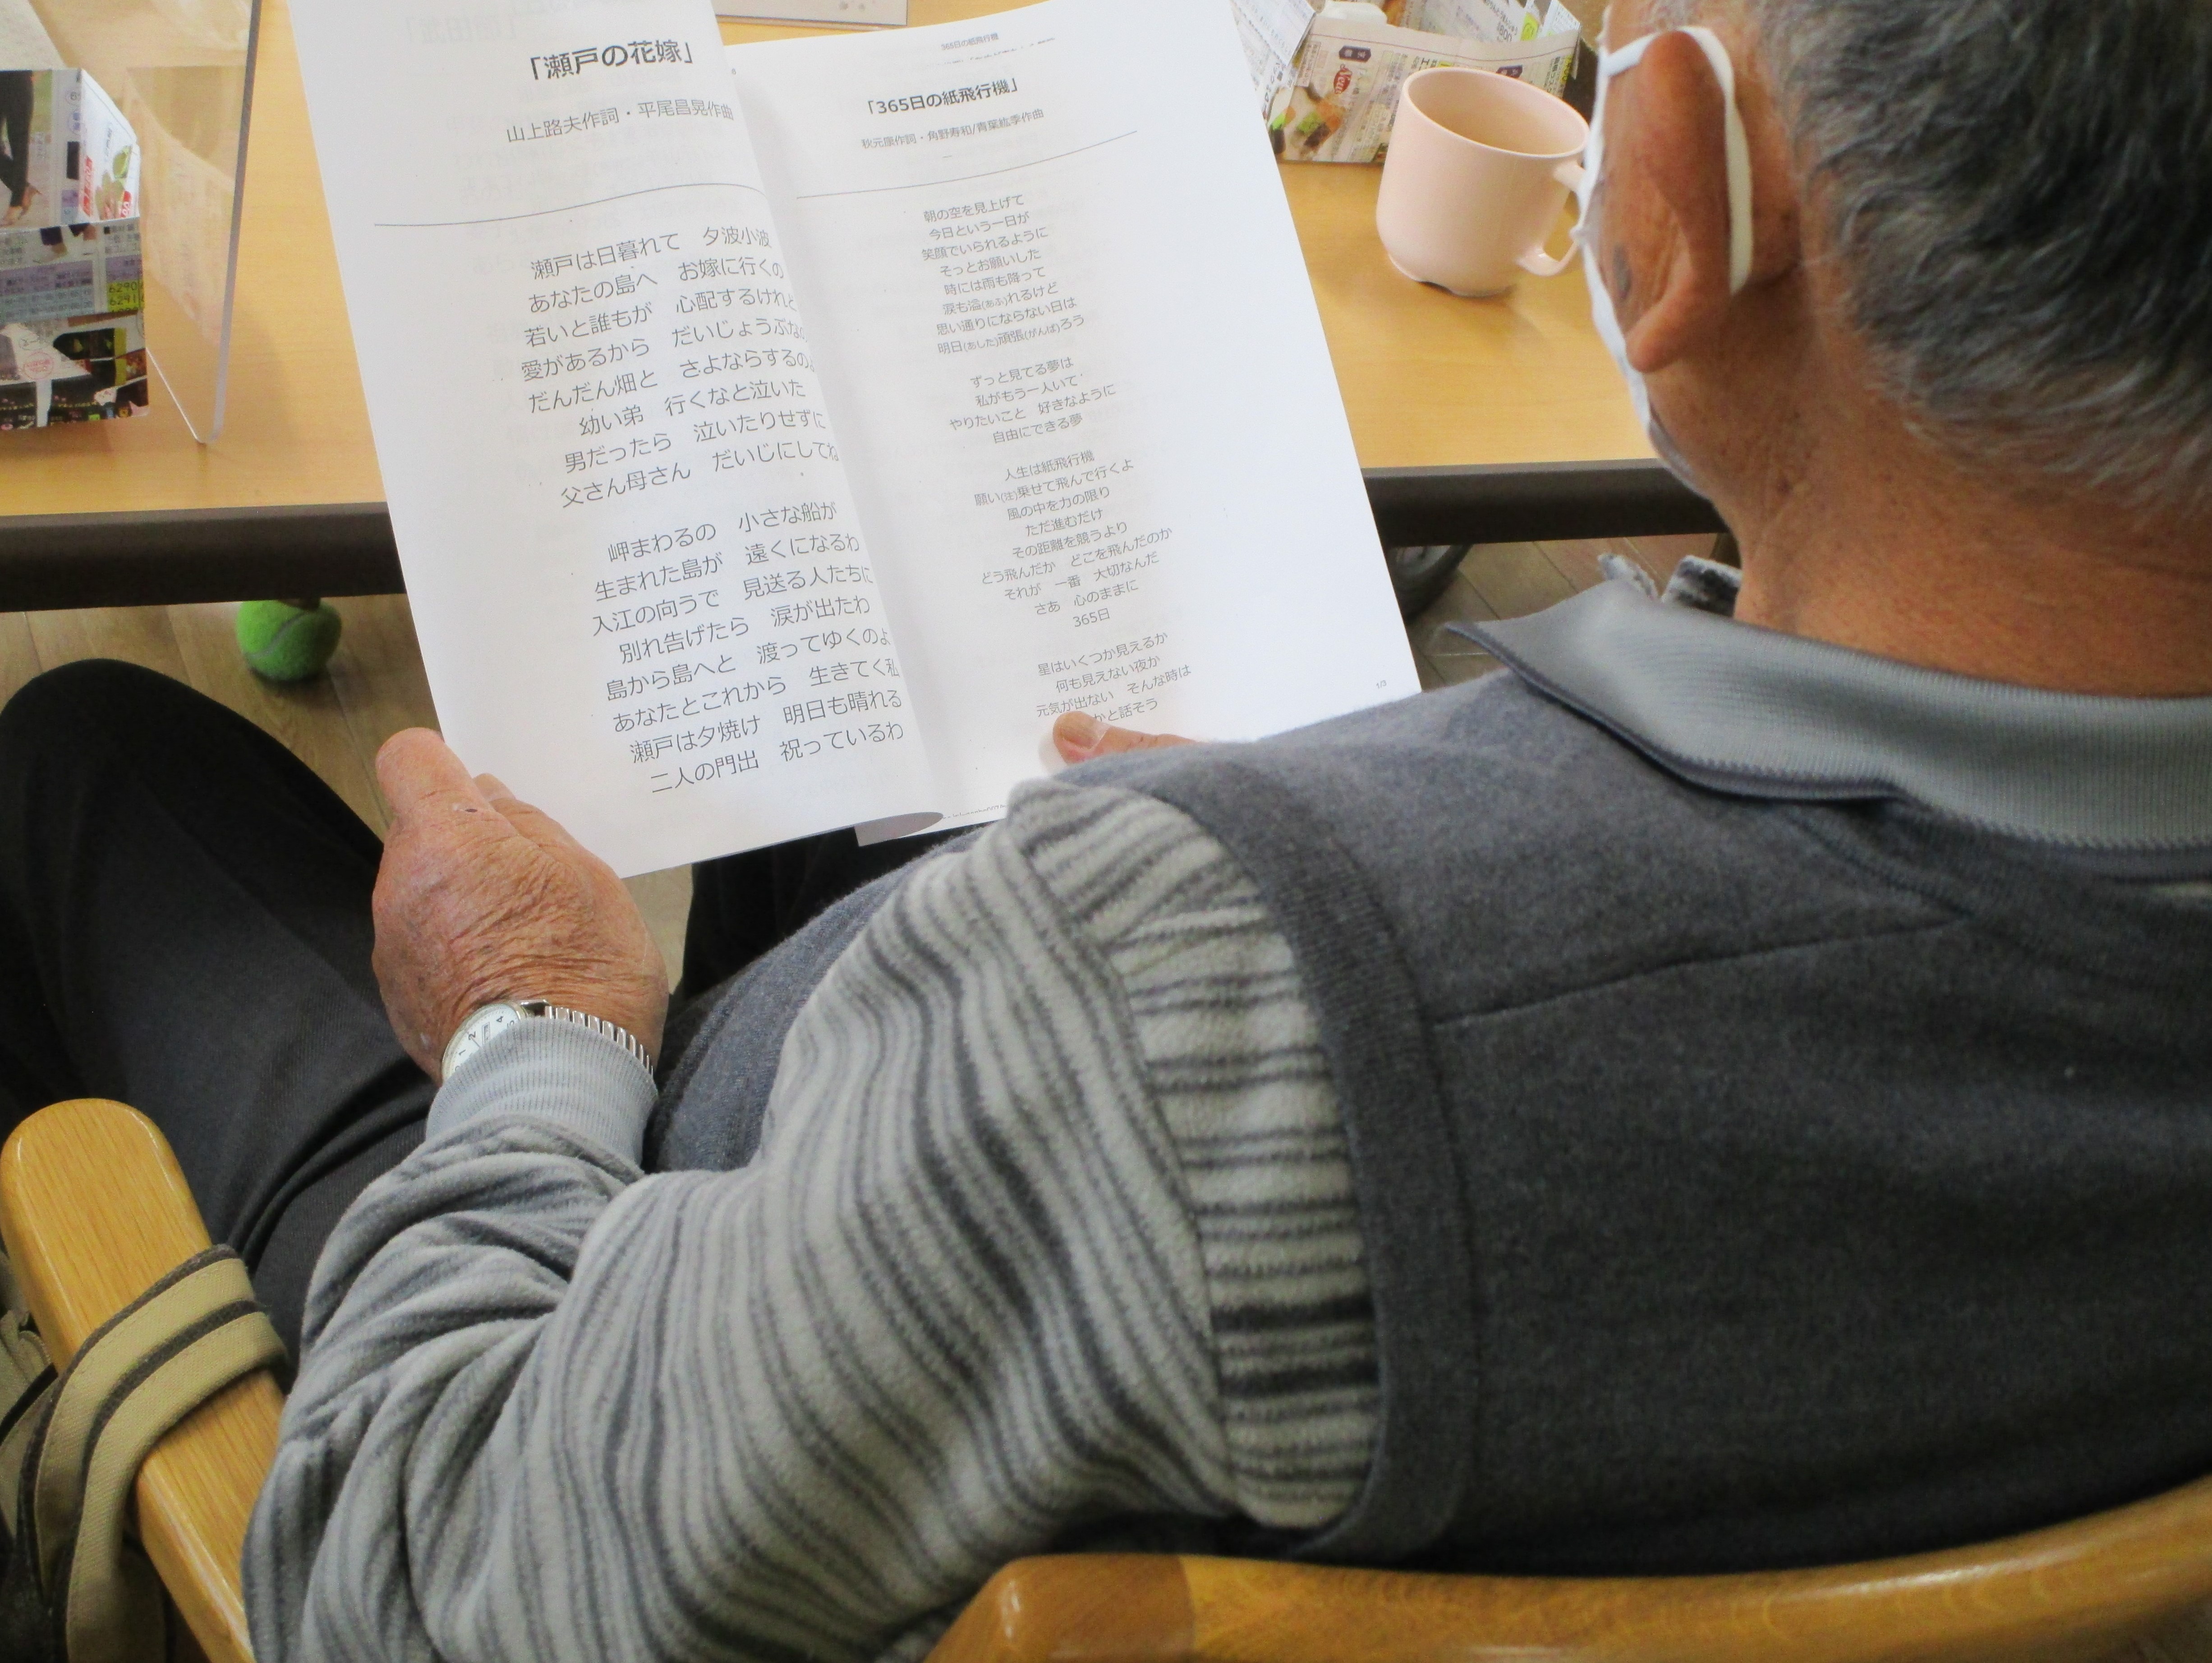 「瀬戸の花嫁」
山上路夫作詞・平尾昌晃作曲
瀬戸は日暮れて 夕波小波
あなたの島へ お嫁に行くの
若いと誰もが 心配するけれど
愛があるから だいじょうぶな
だんだん畑と さよならするの
幼い弟 行くなと泣いた
男だったら 泣いたりせずに
父さん母さん だいじにしてね
岬まわるの 小さな船が
生まれた島が 遠くになるわ
入江の向うで 見送る人たちに
別れ告げたら 涙が出たわ
島から島へと 渡ってゆくのよ
あなたとこれから 生きてく私
瀬戸は夕焼け 明日も晴れる
二人の門出 祝っているわ
365日の紙飛行機
「365日の紙飛行機」
秋元康作詞・角野寿和/青葉紘季作曲
朝の空を見上げて
今日という一日が
笑顔でいられるように
そっとお願いした
時には雨も降って
涙も溢(あふ)れるけど
思い通りにならない日は
明日(あした)頑張(がんば)ろう
ずっと見てる夢は
私がもう一人いて
やりたいこと 好きなように
自由にできる夢
人生は紙飛行機
願い(注)乗せて飛んで行くよ
風の中を力の限り
ただ進むだけ
その距離を競うより
どう飛んだか どこを飛んだのか
それが 一番 大切なんだ
さあ 心のままに
365日
星はいくつか見えるか
何も見えない夜か
元気が出ない そんな時は
かと話そう
1/3
6290
6291